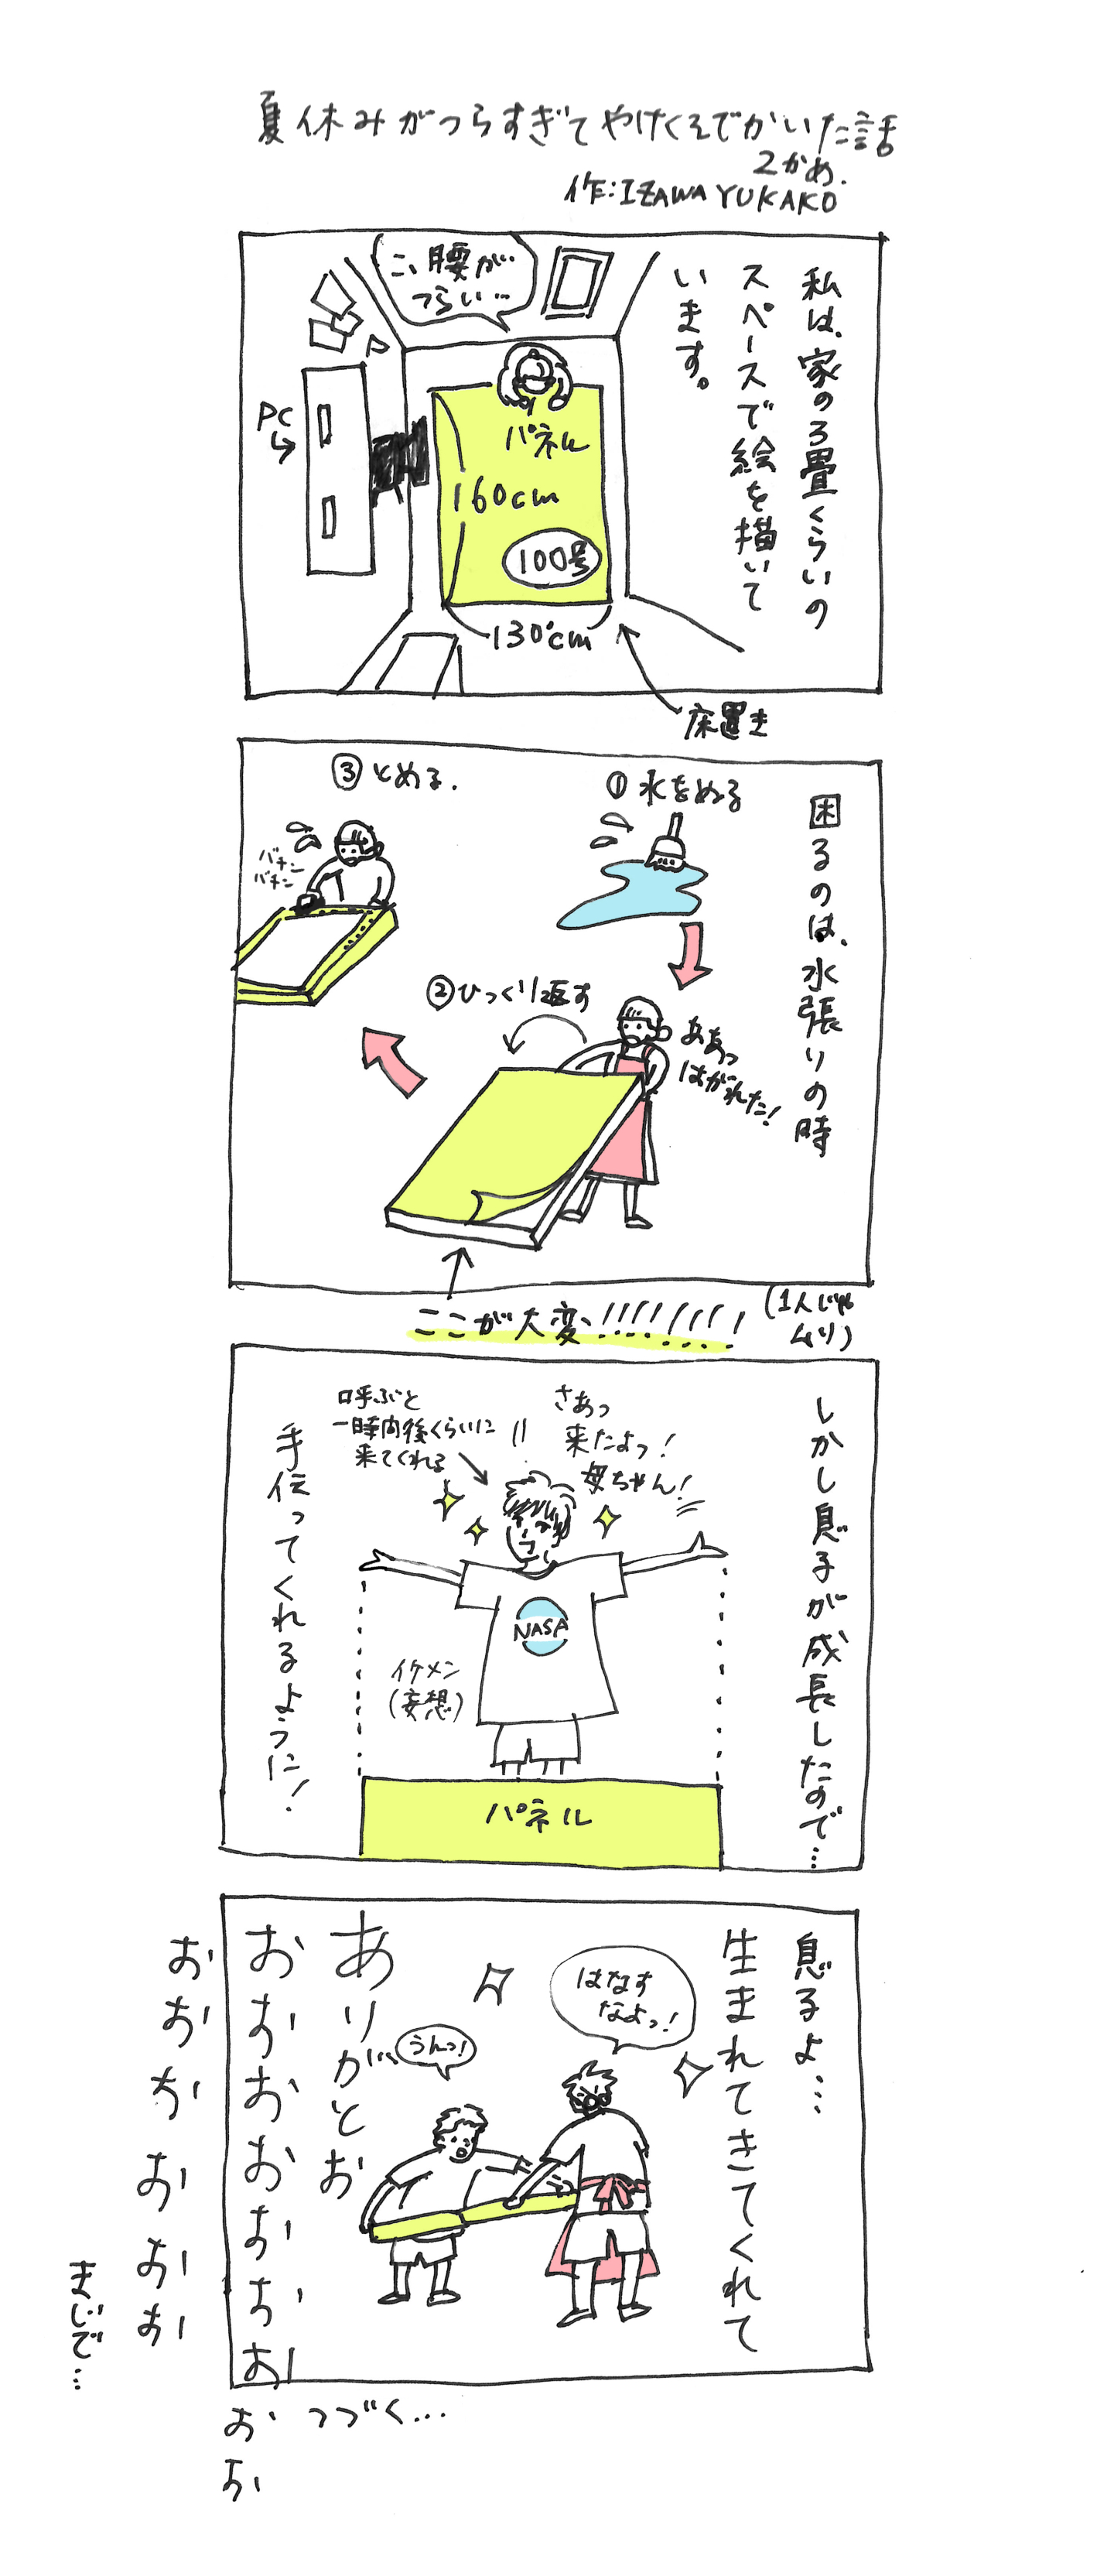 夏休みがつらすぎてやけくそでかいた話
2かめ.
作:IZAWA YUKAKO
私は、家の3畳くらいの
スペースで絵を描いて
います。
こ、腰が…
つらい…
PC
パネル
160cm
100号
130cm
床置き
困るのは、水張りの時
①水をぬる
②ひっくり返す
ああっ
はがれた!
③とめる.
バチン
バチン
ここが大変!!!!!!!!
(1人じゃ
ムリ)
しかし息子が成長したので…
さあっ
来たよっ!
母ちゃん!
呼ぶと
一時間後くらいに
来てくれる
NASA
イケメン
(妄想)
手伝ってくれるように!
パネル
息子よ…
生まれてきてくれて
はなす
なよっ!
うんっ!
ありがとお
おおおおおおお
おお
おおおおおお
まじで…
つづく…